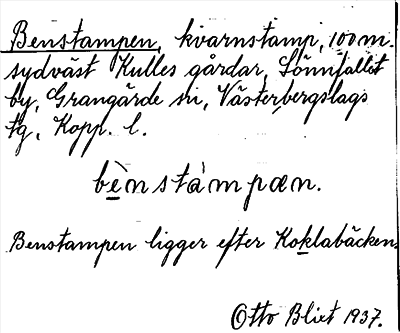 Benstampen, kvarnstamp, 100 m.
sydväst Kulles gårdar, Sönnifallet
by, Grangärde sn, Västerbergslags
tg, Kopp. l.
bènstàmpæn.
Benstampen ligger efter Koklabäcken.
Otto Blixt 1937.